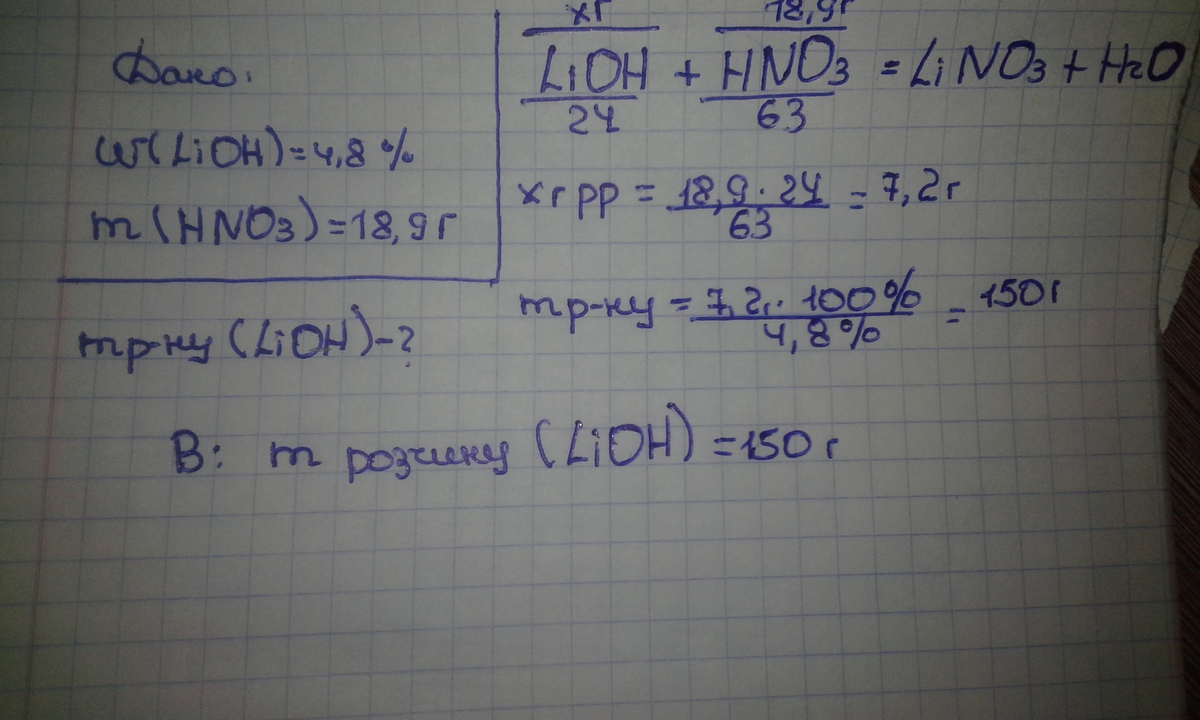 Дано:
ω(LiOH)=4,8%
m(HNO3)=18,9г
mр-ну(LiOH)-?
хг 18,9г
LiOH + HNO3 = LiNO3 + H2O
24 63
хг рр = 18,9·24 / 63 = 7,2г
mр-ну = 7,2г·100% / 4,8% = 150г
В: m розчину (LiOH) = 150 г